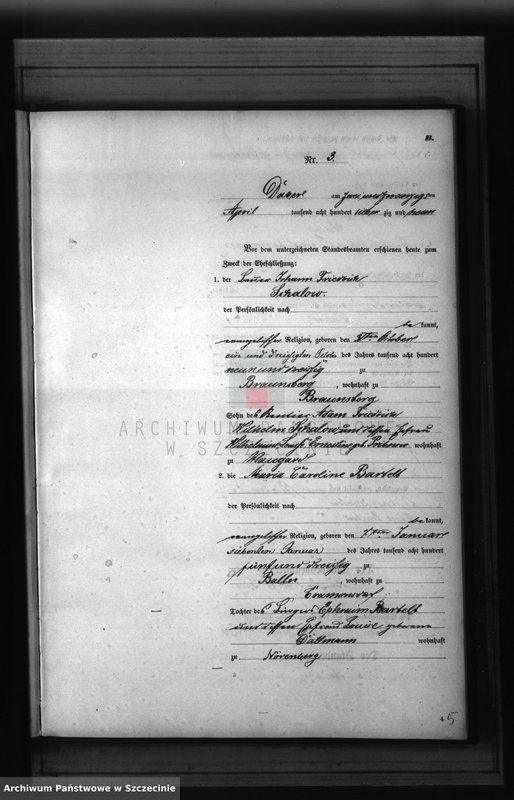 B.
Nr. 3.
Däberl am zwei und zwanzigsten
April tausend acht hundert und
Vor dem unterzeichneten Standesbeamten erschienen heute zum
Zweck der Eheschließung:
1. der Bauer Johann Friedrich
Schalow.
der Persönlichkeit nach
be kannt,
evangelischer Religion, geboren den
ein und dreißigsten des Jahres tausend acht hundert
neun und dreißig zu
Braunsberg, wohnhaft zu
Braunsberg
Sohn des Rentier Adam Friedrich
Wilhelm Schalow und dessen Ehefrau
Wilhelmine Louise Ernestine geb. wohnhaft
zu Naugard
2. die Maria Caroline Bartelt
der Persönlichkeit nach
be kannt,
evangelischer Religion, geboren den 7ten Januar
siebenten Januar des Jahres tausend acht hundert
fünf und dreißig zu
, wohnhaft zu
Cramonsdorf
Tochter des Bürgers Ephraim Bartelt
und dessen Ehefrau Louise geborene
Dallmann wohnhaft
zu Nörenberg
5
ARCHIWUM
W SZCZECINIE
Archiwum Państwowe w Szczecinie